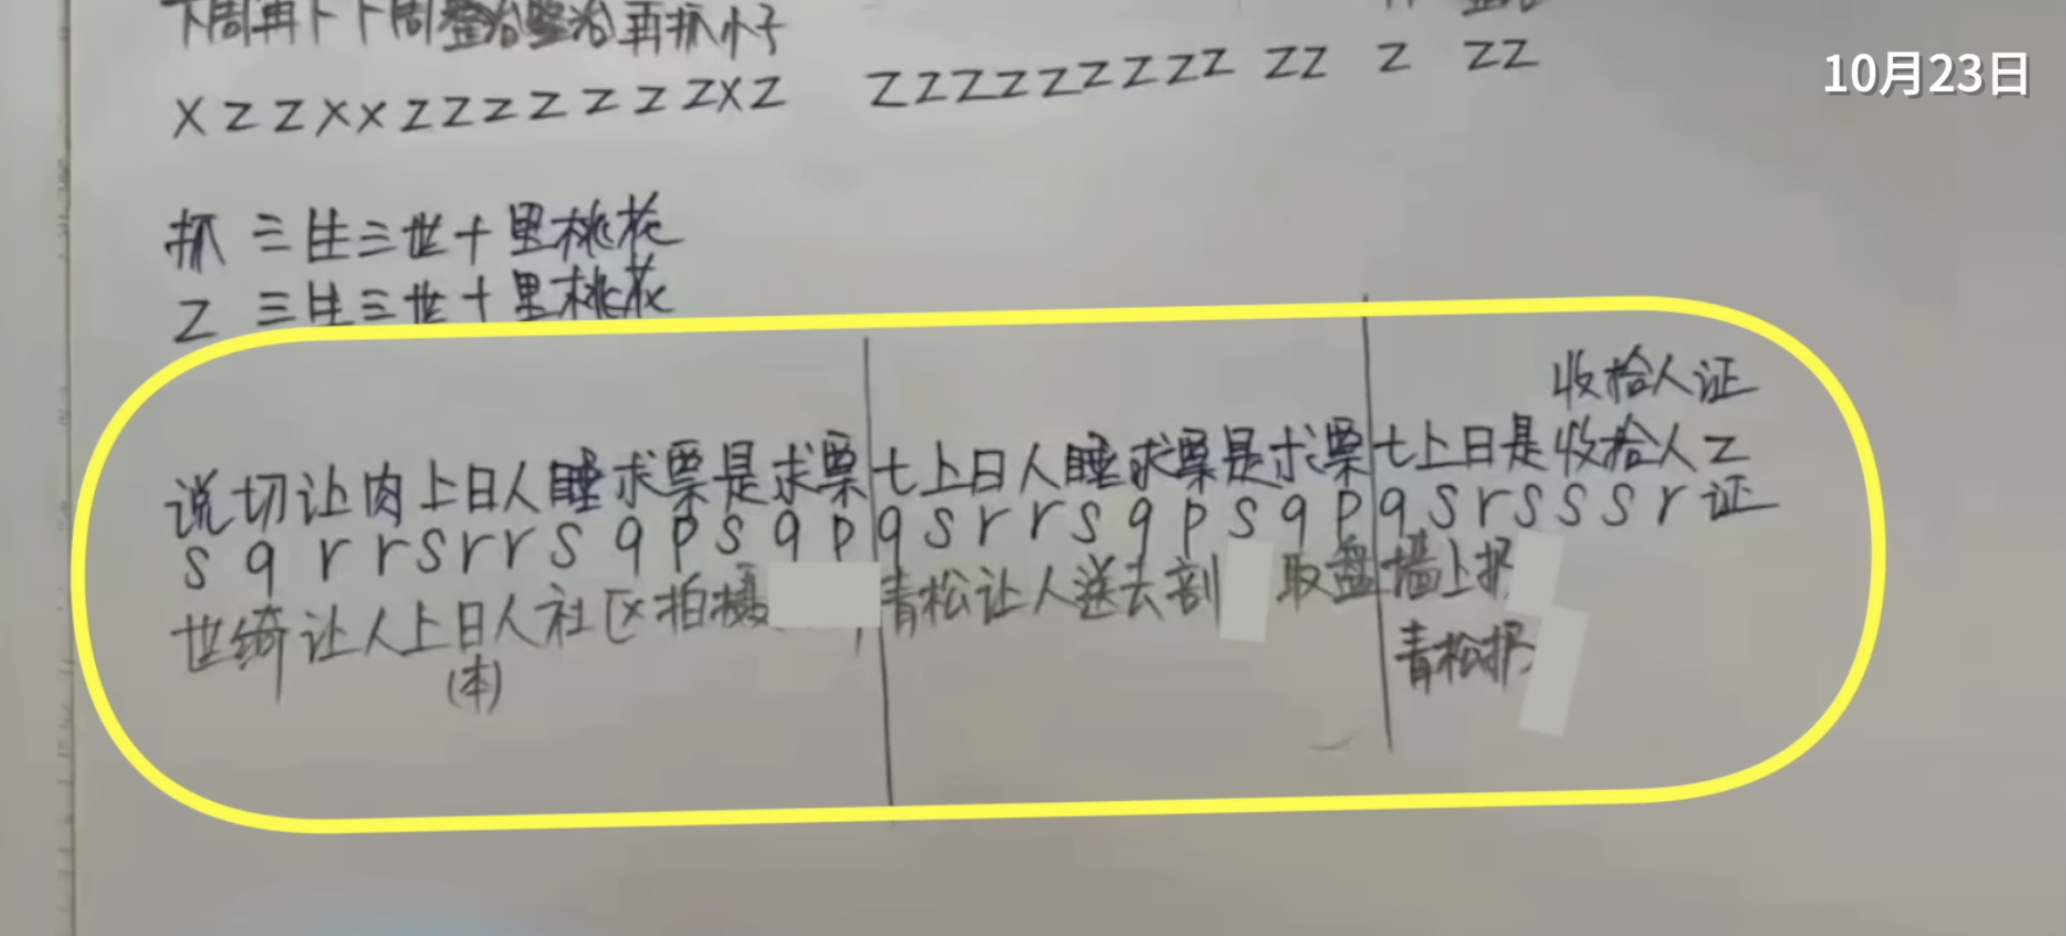 下周再下下周整治整治再抓小子
XZZXXZZZZZZZZXZ ZZZZZZZZZ ZZ Z ZZ
10月23日
抓 三生三世十里桃花
Z 三生三世十里桃花
收拾人证
说切让肉上日人睡求票是求票 七上日人睡求票是求票 七上日是收拾人Z
s q r r s r r s q p s q p q s r r s q p s q p q s r s s s r 证
世绮让人上日人社区拍摄 青松让人送去剖 取盘 墙上扔
(本) 青松扔